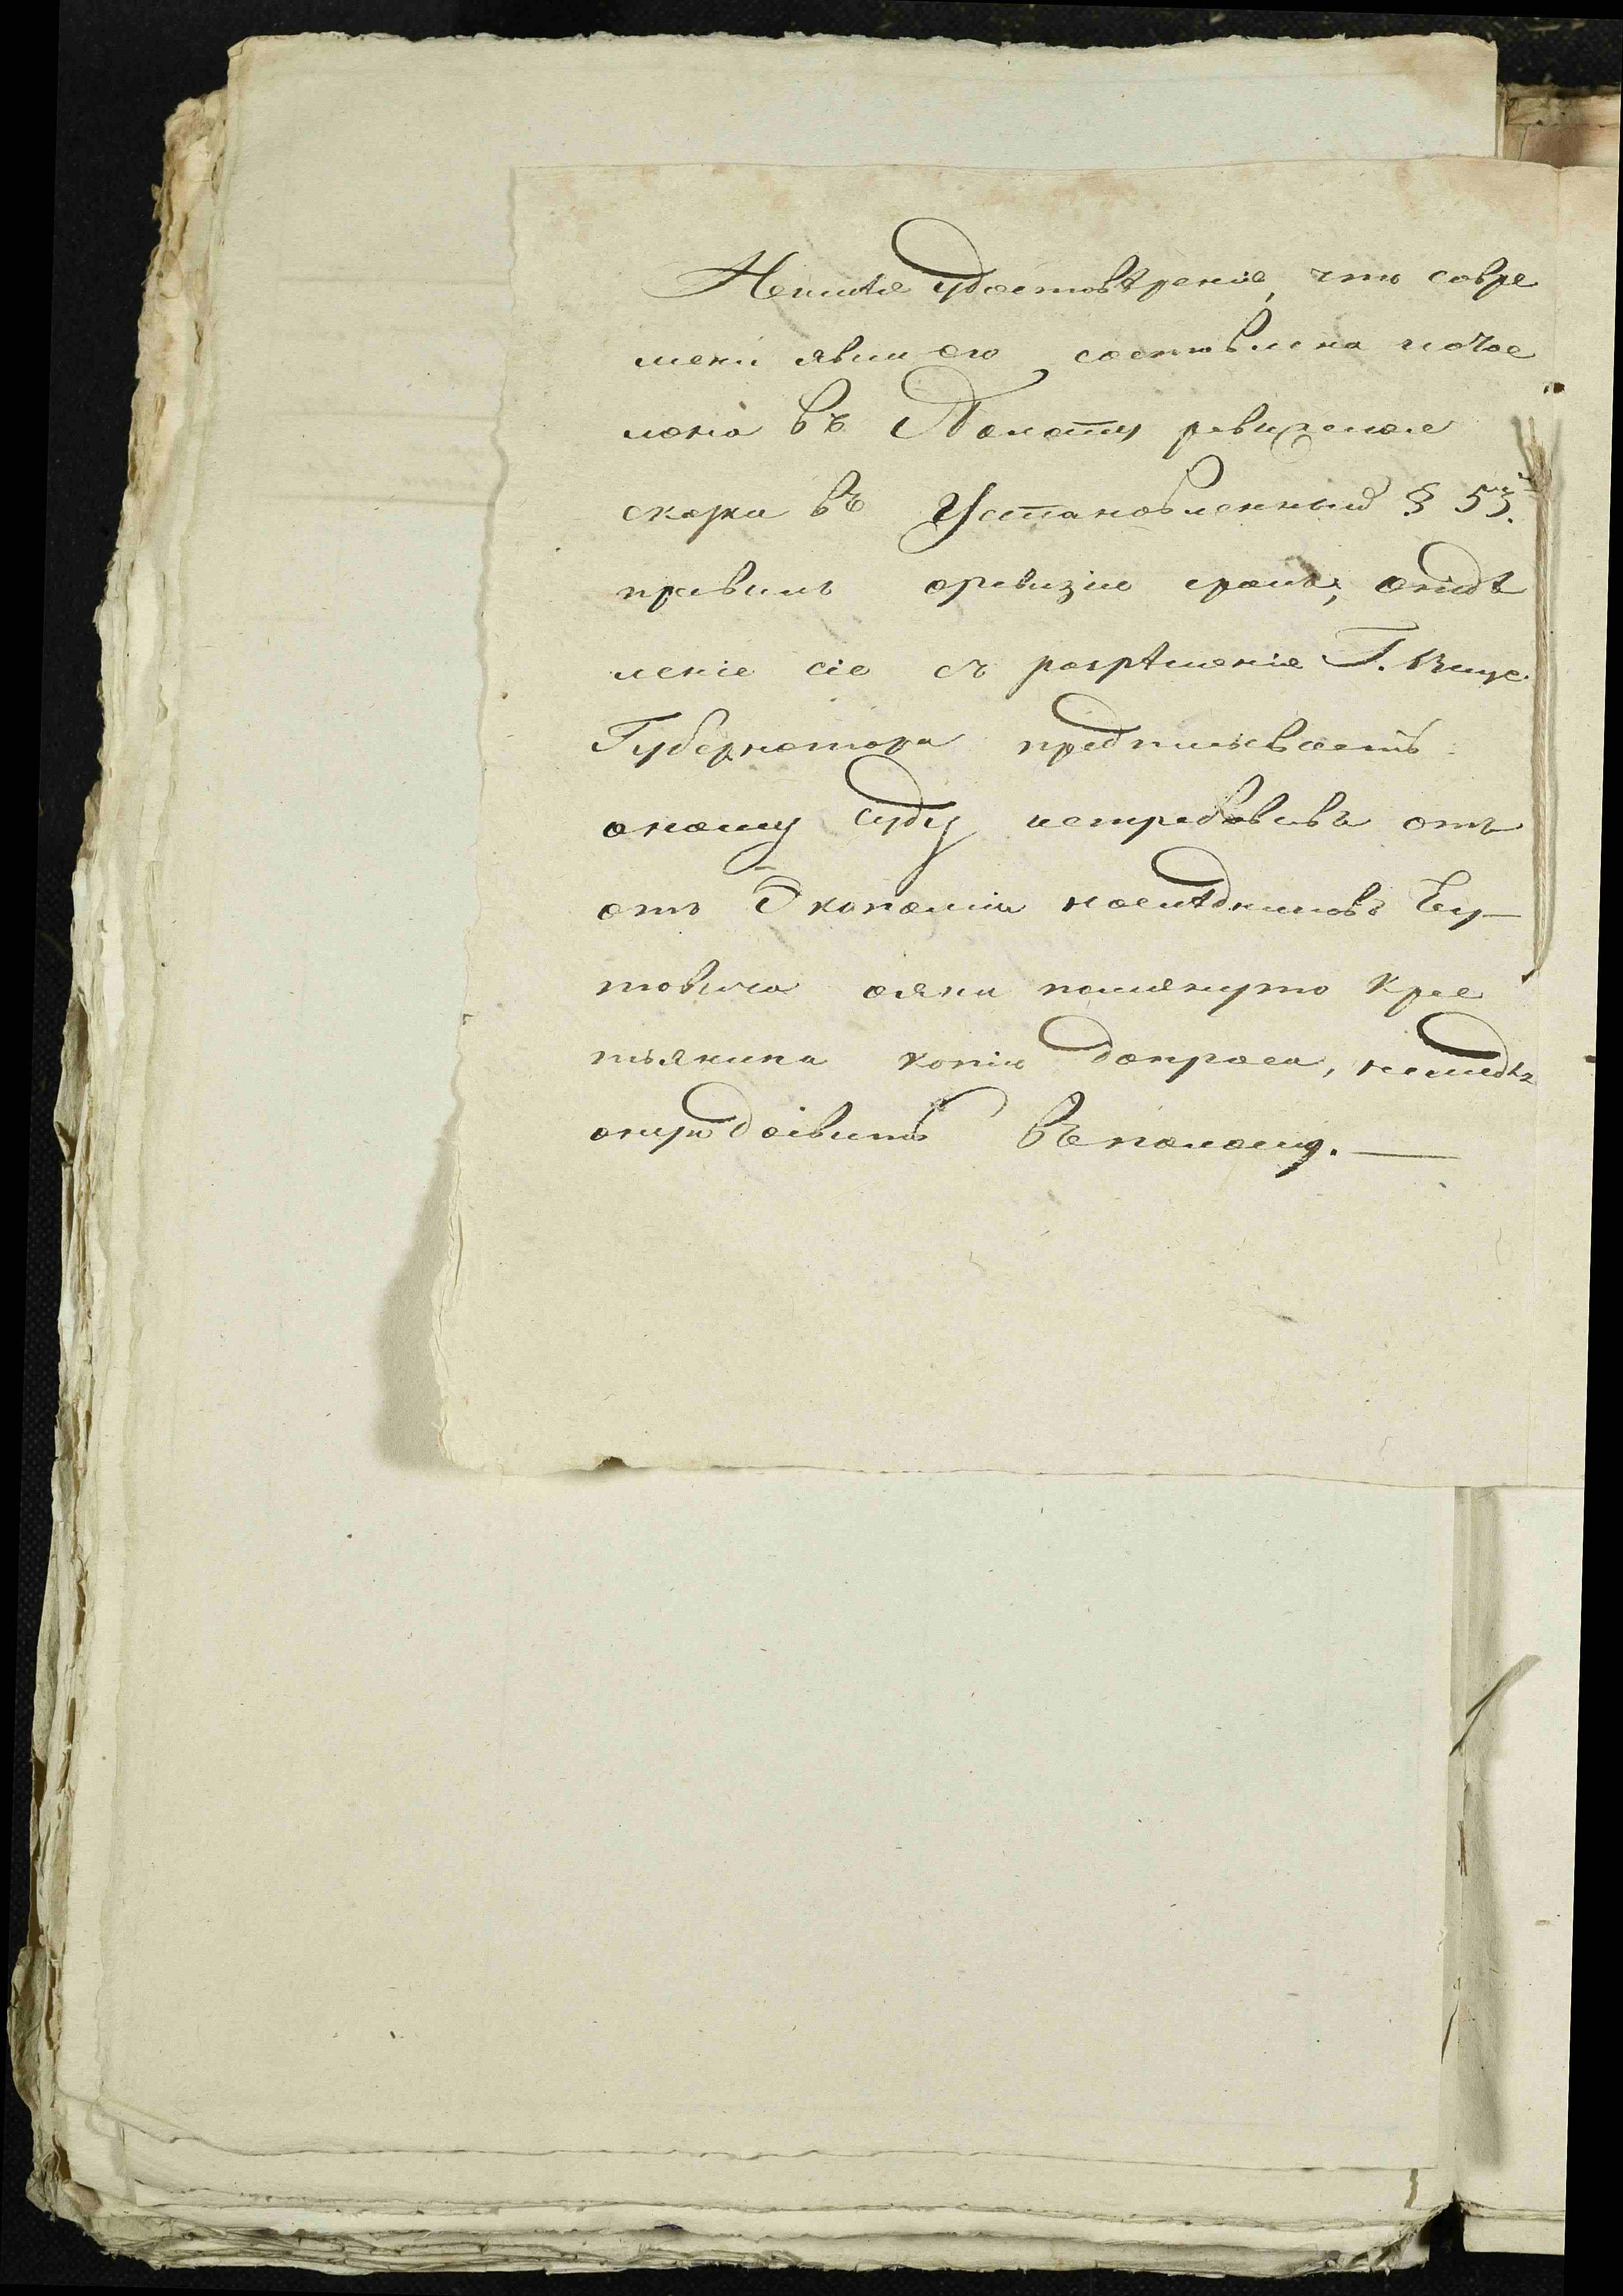 Неимѣя удостовѣренія, что совре
мени явки его составлена и осо
лана въ Палату ревизская
скаска въ Установленный § 53.мъ
правилъ оревизіи срокъ, отдѣ
леніе сіе съ разрѣшенія Г. Вице
Губернатора предписываетъ
оному суду истребовавъ отъ
отъ Экономіи наслѣдниковъ Бу-
товича оявки помянуто крес
тьянина копію допроса, немедлѣ
доставить въ палату.